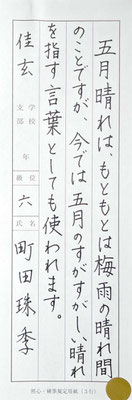 五月晴れは、もともとは梅雨の晴れ間
のことですが、今では五月のすがすがしい晴れ
を指す言葉としても使われます。
学校
支部
佳玄
年
段位
六
氏名
町田珠季